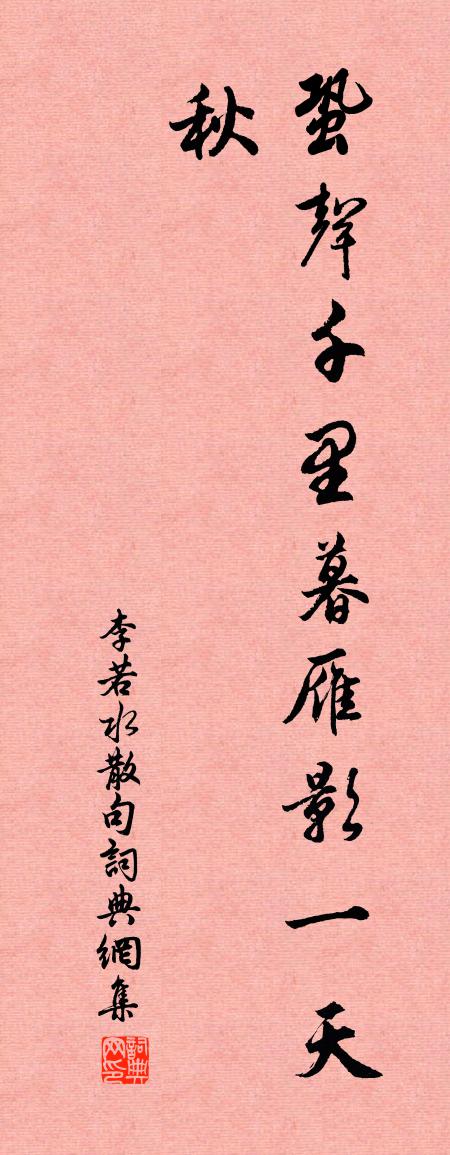 蛩聲千里暮雁影一天
秋
李若水散句詞典網集
詞典網印